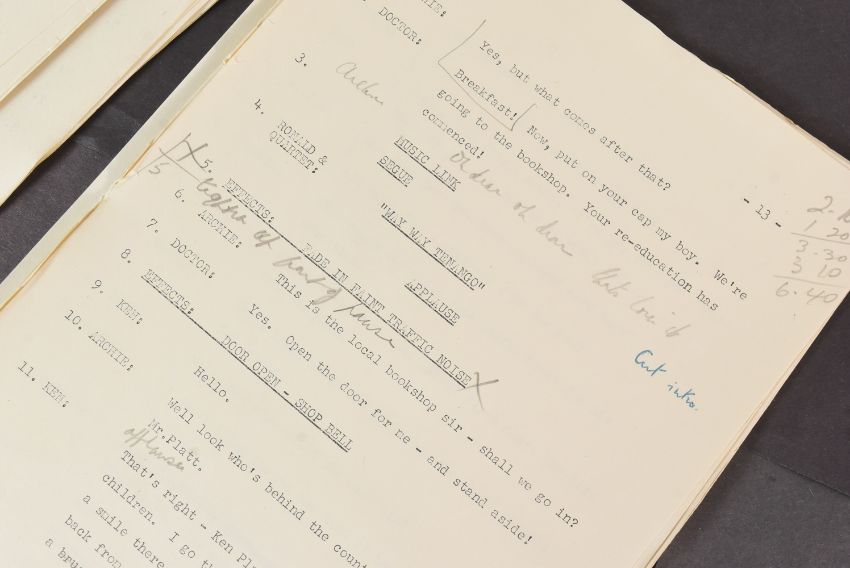 - 13 -
DOCTOR:
Yes, but what comes after that?
Breakfast! Now, put on your cap my boy. We're
going to the bookshop. Your re-education has
commenced!
3.
MUSIC LINK
SEGUE
4. RONALD &
QUARTET: "WAY WAY TENANGO"
APPLAUSE
5. EFFECTS: FADE IN FAINT TRAFFIC NOISE X
6. ARCHIE: This is the local bookshop sir - shall we go in?
7. DOCTOR: Yes. Open the door for me - and stand aside!
8. EFFECTS: DOOR OPEN - SHOP BELL
9. KEN: Hello.
10. ARCHIE: Well look who's behind the
Mr. Platt.
applause
11. KEN: That's right - Ken
children. I go
a smile there
back from
1 20
3.30
3 10
6.40
Cut intro.